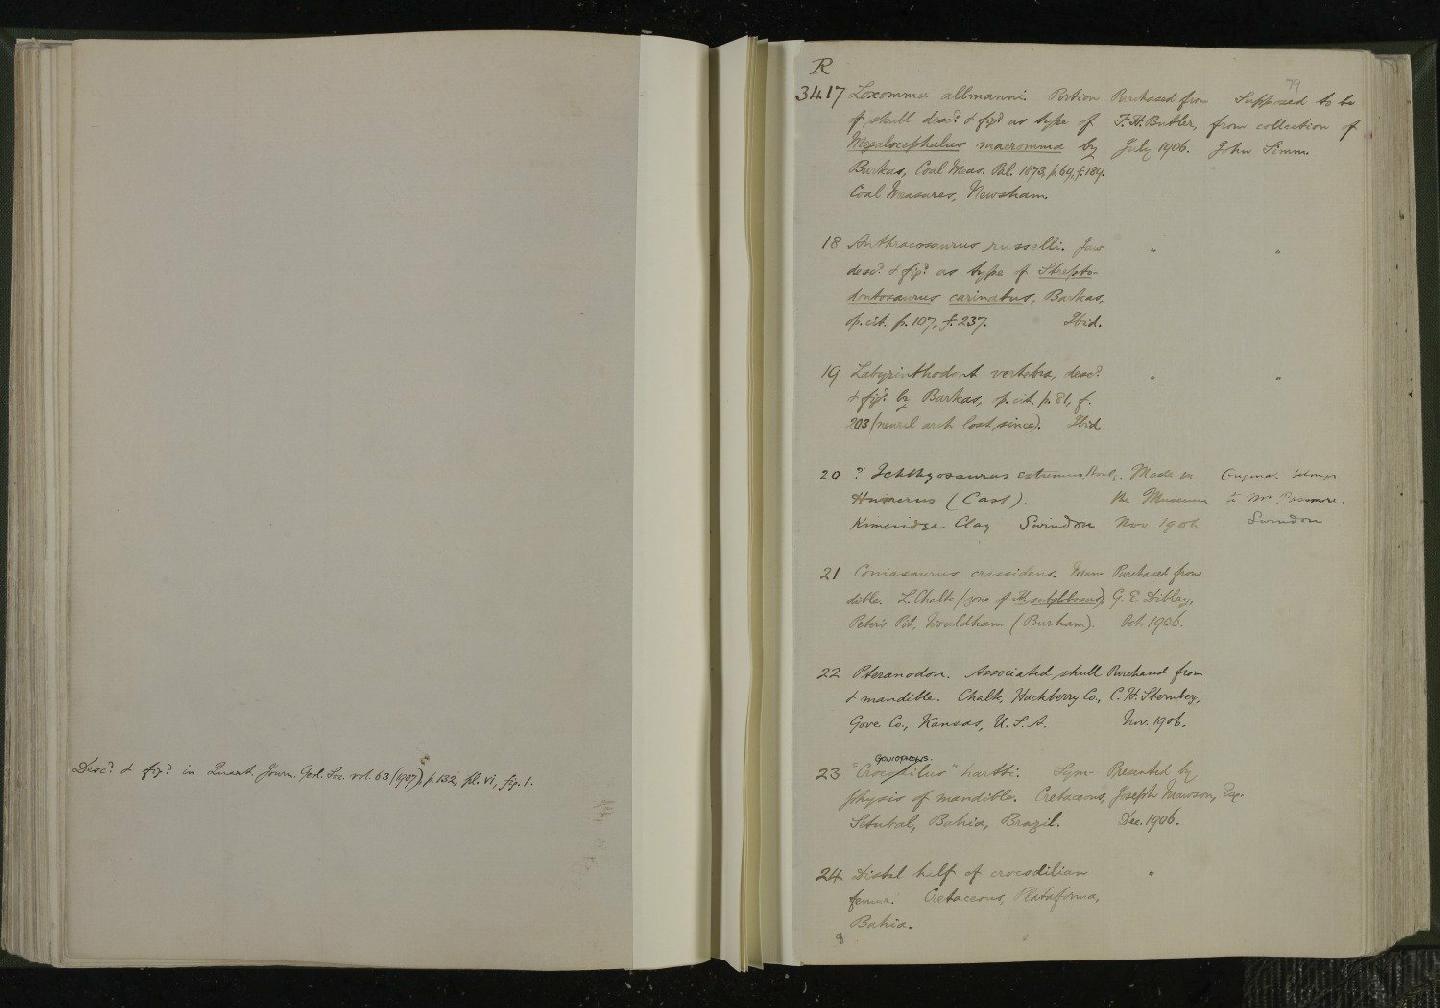 Desc.d & fig.d in Quart. Journ. Geol. Soc. vol. 63 (1907) p. 132, pl. vi, fig. 1.
R
79
3417 Loxomma allmanni. Portion Purchased from Supposed to be
of skull desc.d & fig.d as type of F. H. Butler, from collection of
Megalocephalus macromma by July 1906. John Simm.
Barkas, Coal Meas. Pal. 1873, p. 69, f. 189.
Coal Measures, Newsham.
18 Anthracosaurus russelli. Jaw " "
desc.d & fig.d as type of Strepto-
dontosaurus carinatus, Barkas,
op. cit. p. 107, f. 237. Ibid.
19 Labyrinthodont vertebra, desc.d " "
& fig.d by Barkas, op. cit. p. 81, f.
203 (neural arch lost since). Ibid
20 ? Ichthyosaurus extremus Made in Original belongs
Humerus (Cast). the Museum to Mr Passmore.
Kimeridge Clay Swindon Nov 1906 Swindon
21 Coniasaurus crassidens. Man- Purchased from
dible. L. Chalk (zone of ) G. E. Dibley,
Peter's Pit, Wouldham (Burham). Oct. 1906.
22 Pteranodon. Associated skull Purchased from
& mandible. Chalk, Hackberry Co., C. H. Sternberg,
Gove Co., Kansas, U.S.A. Nov. 1906.
Goniopholis.
23 "Crocodilus" hartti. Sym- Presented by
physis of mandible. Cretaceous, Joseph Mawson, Esq.
Setubal, Bahia, Brazil. Dec. 1906.
24 Distal half of crocodilian "
femur. Cretaceous, Plataforma,
Bahia.